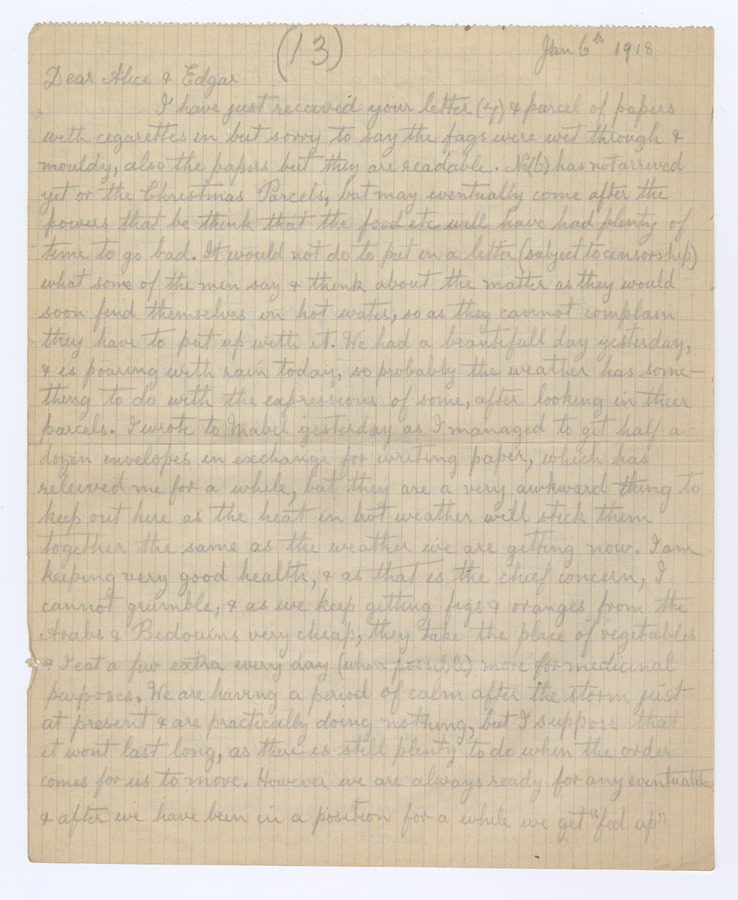 (13)
Jan 6th 1918
Dear Alice & Edgar
I have just received your letter (7) & parcel of papers
with cigarettes in but sorry to say the fags were wet through &
mouldy, also the papers but they are readable. No(6) has not arrived
yet or the Christmas Parcels, but may eventually come after the
powers that be think that the food etc will have had plenty of
time to go bad. It would not do to put in a letter (subject to censorship)
what some of the men say & think about the matter as they would
soon find themselves in hot water, so as they cannot complain
they have to put up with it. We had a beautifull day yesterday,
& is pouring with rain today, so probably the weather has some-
thing to do with the expressions of some, after looking in their
parcels. I wrote to Mabel yesterday as I managed to get half a
dozen envelopes in exchange for writing paper, which has
releived me for a while, but they are a very awkward thing to
keep out here as the heat in hot weather will stick them
together the same as the weather we are getting now. I am
keeping very good health, & as that is the chief concern, I
cannot grumble, & as we keep getting figs & oranges from the
Arabs & Bedouins very cheap, they take the place of vegetables
& I eat a few extra every day (when possible) more for medicinal
purposes. We are having a period of calm after the storm just
at present & are practically doing nothing, but I suppose that
it wont last long, as there is still plenty to do when the order
comes for us to move. However we are always ready for any eventualities
& after we have been in a position for a while we get "fed up"